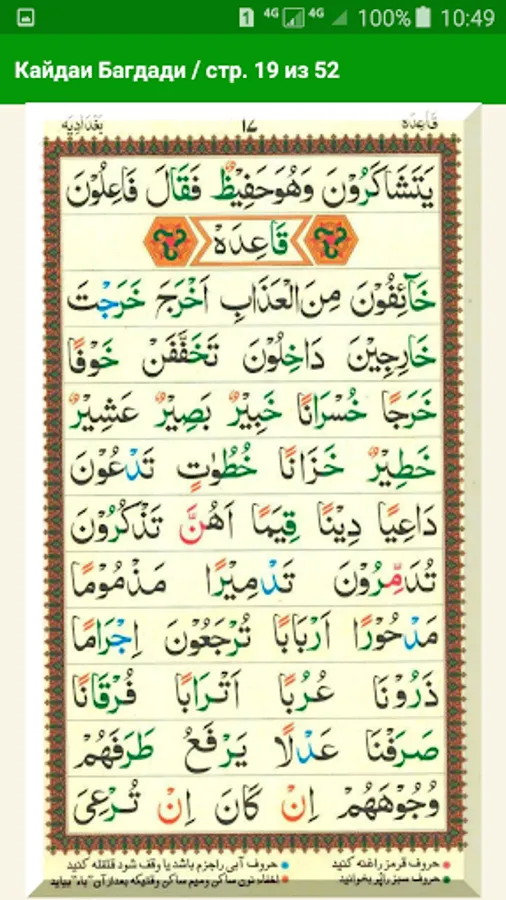 1 4G 4G 100% 10:49
Кайдаи Багдади / стр. 19 из 52
قاعده ١٧ بغدادیه
يَتَشَاكَرُوْنَ وَهُوَحَفِيْظٌ فَقَالَ فَاعِلُوْنَ
قَاعِدَهْ
خَآئِفُوْنَ مِنَ الْعَذَابِ اَخْرَجَ خَرَجْتَ
خَارِجِيْنَ دَاخِلُوْنَ تَخَفَّفَنْ خَوْفًا
خَرَجًا خُسْرَانًا خَبِيْرٌ بَصِيْرٌ عَشِيْرٌ
خَطِيْرٌ خَزَانًا خُطُوٰتٍ تَدْعُوْنَ
دَاعِيًا دِيْنًا قِيَمًا اَهُنَّ تَذْكُرُوْنَ
تُدَمِّرُوْنَ تَدْمِيْرًا مَذْمُوْمًا
مَدْحُوْرًا اَرْبَابًا تُرْجَعُوْنَ اِجْرَامًا
ذَرُوْنَا عُرُبًا اَتْرَابًا فُرْقَانًا
صَرَفْنَا عَدْلًا يَرْفَعُ طَرَفَهُمْ
وُجُوْهَهُمْ اِنْ كَانَ اِنْ تُرْعِىَ
حروف قرمز راغنه کنید حروف آبی راجزم باشد یا وقف شود قلقله کنید
حروف سبز راپُر بخوانید اخفاء نون ساکن ومیم ساکن وقتیکه بعد از آن "باء" بیاید